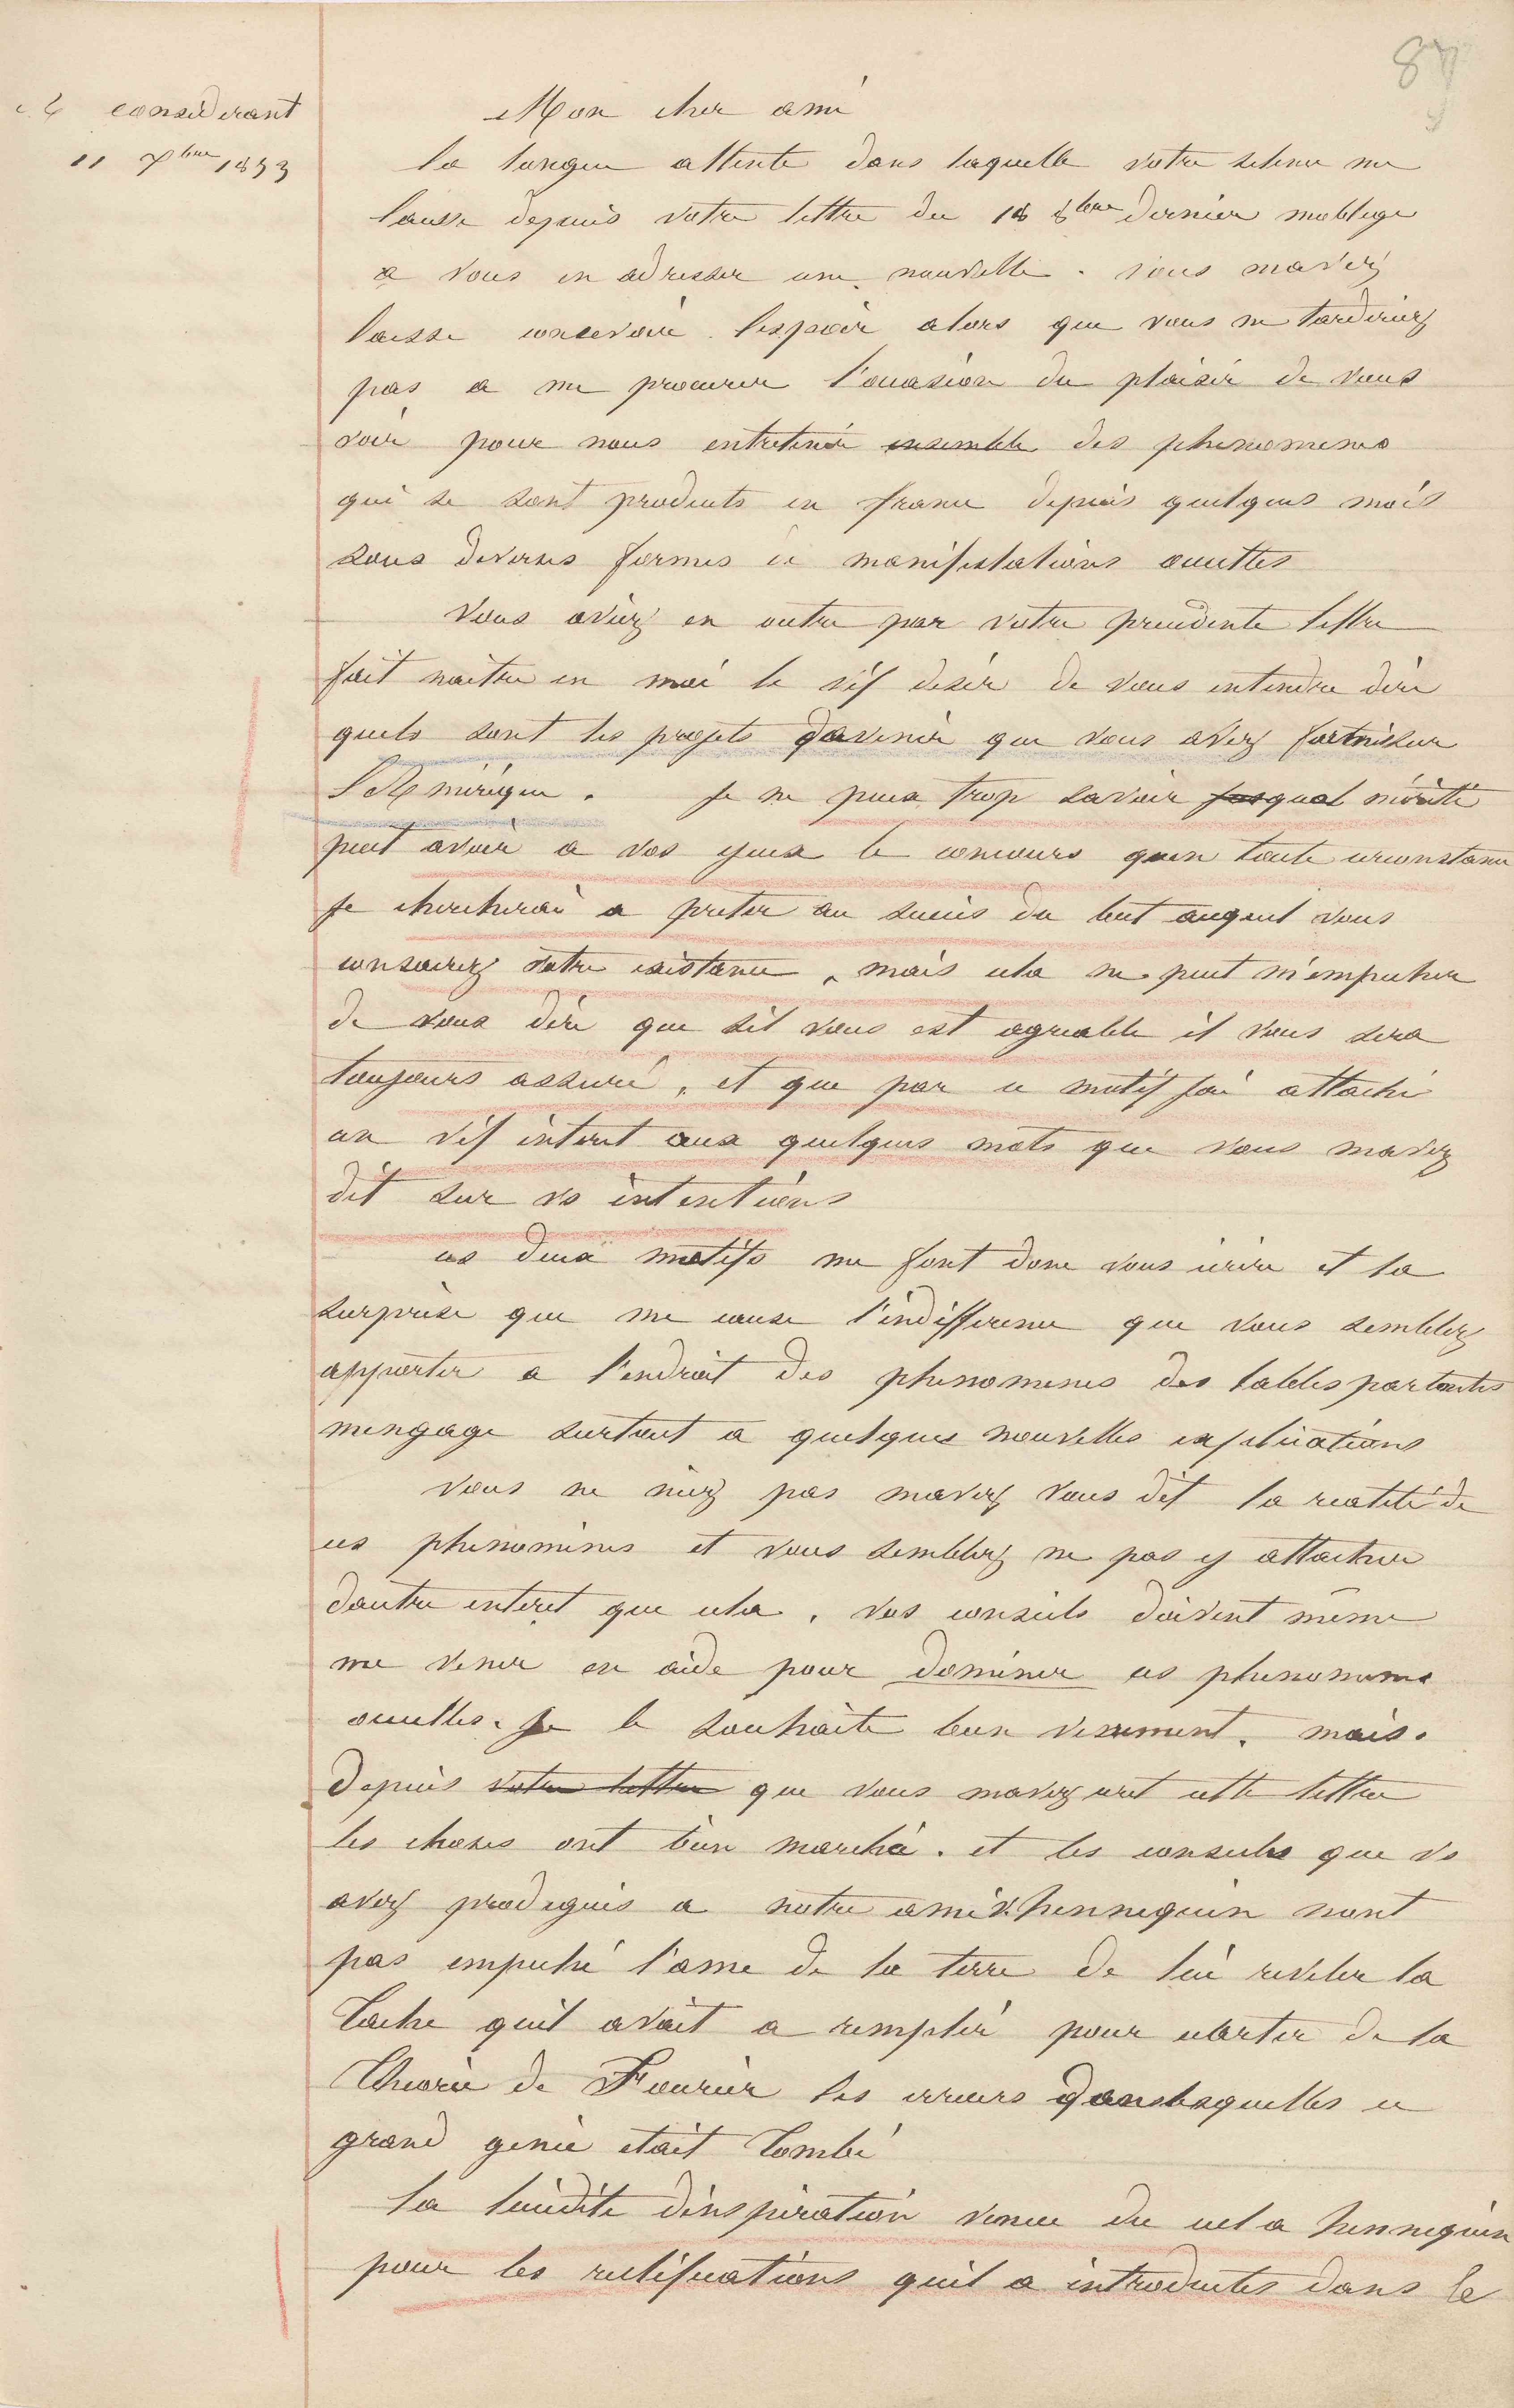 87
considerant
11 Xbre 1853
Mon cher ami
la longue attente dans laquelle votre silence me
laisse depuis votre lettre du 18 8bre dernier moblige
a vous en adresser une nouvelle. vous mavez
laisse concevoir lespoir alors que vous ne tarderiez
pas a me procurer l'occasion du plaisir de vous
voir pour nous entretenir ensemble des phenomenes
qui se sont produits en france depuis quelques mois
sous diverses formes de manifestations occultes
Vous aviez en outre par votre precedente lettre
fait naitre en moi le vif desir de vous entendre dire
quels sont les projets davenir que vous avez formé sur
l'Amerique. Je ne puis trop savoir quel mérite
peut avoir a vos yeux le concours quen toute circonstance
Je chercherai a preter au succes du but auquel vous
consacrez votre existance, mais cela ne peut m'empecher
de vous dire que sil vous est agreable il vous sera
toujours assuré, et que par ce motif jai attaché
un vif interet aux quelques mots que vous mavez
dit sur vo intentions
ces deux motifs me font donc vous ecrire et la
surprise que me cause l'indifference que vous semblez
apporter a l'endroit des phenomenes des tables parlantes
mengage surtout a quelques nouvelles explications
vous ne niez pas mavez vous dit la realité de
ces phenomenes et vous semblez ne pas y attacher
dautre interet que cela, vos conseils doivent meme
me venir en aide pour dominer ces phenomenes
occultes. Je le souhaite bien vivement. mais.
depuis votre lettre que vous mavez ecrit cette lettre
les choses ont bien marché. et les conseils que vo
avez prodigués a notre ami V. hennequin nont
pas empeché l'ame de la terre de lui reveler la
tache quil avait a remplir pour ecarter de la
Theorie de Fourier les erreurs dans lesquelles ce
grand genie etait tombé
la lucidite dinspiration venue du ciel a hennequin
pour les rectifications quil a introduites dans le